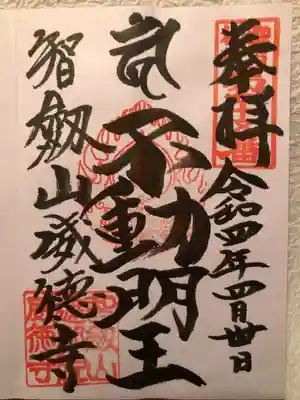 奉拝
令和四年四月卅日
不動明王
智劔山威徳寺